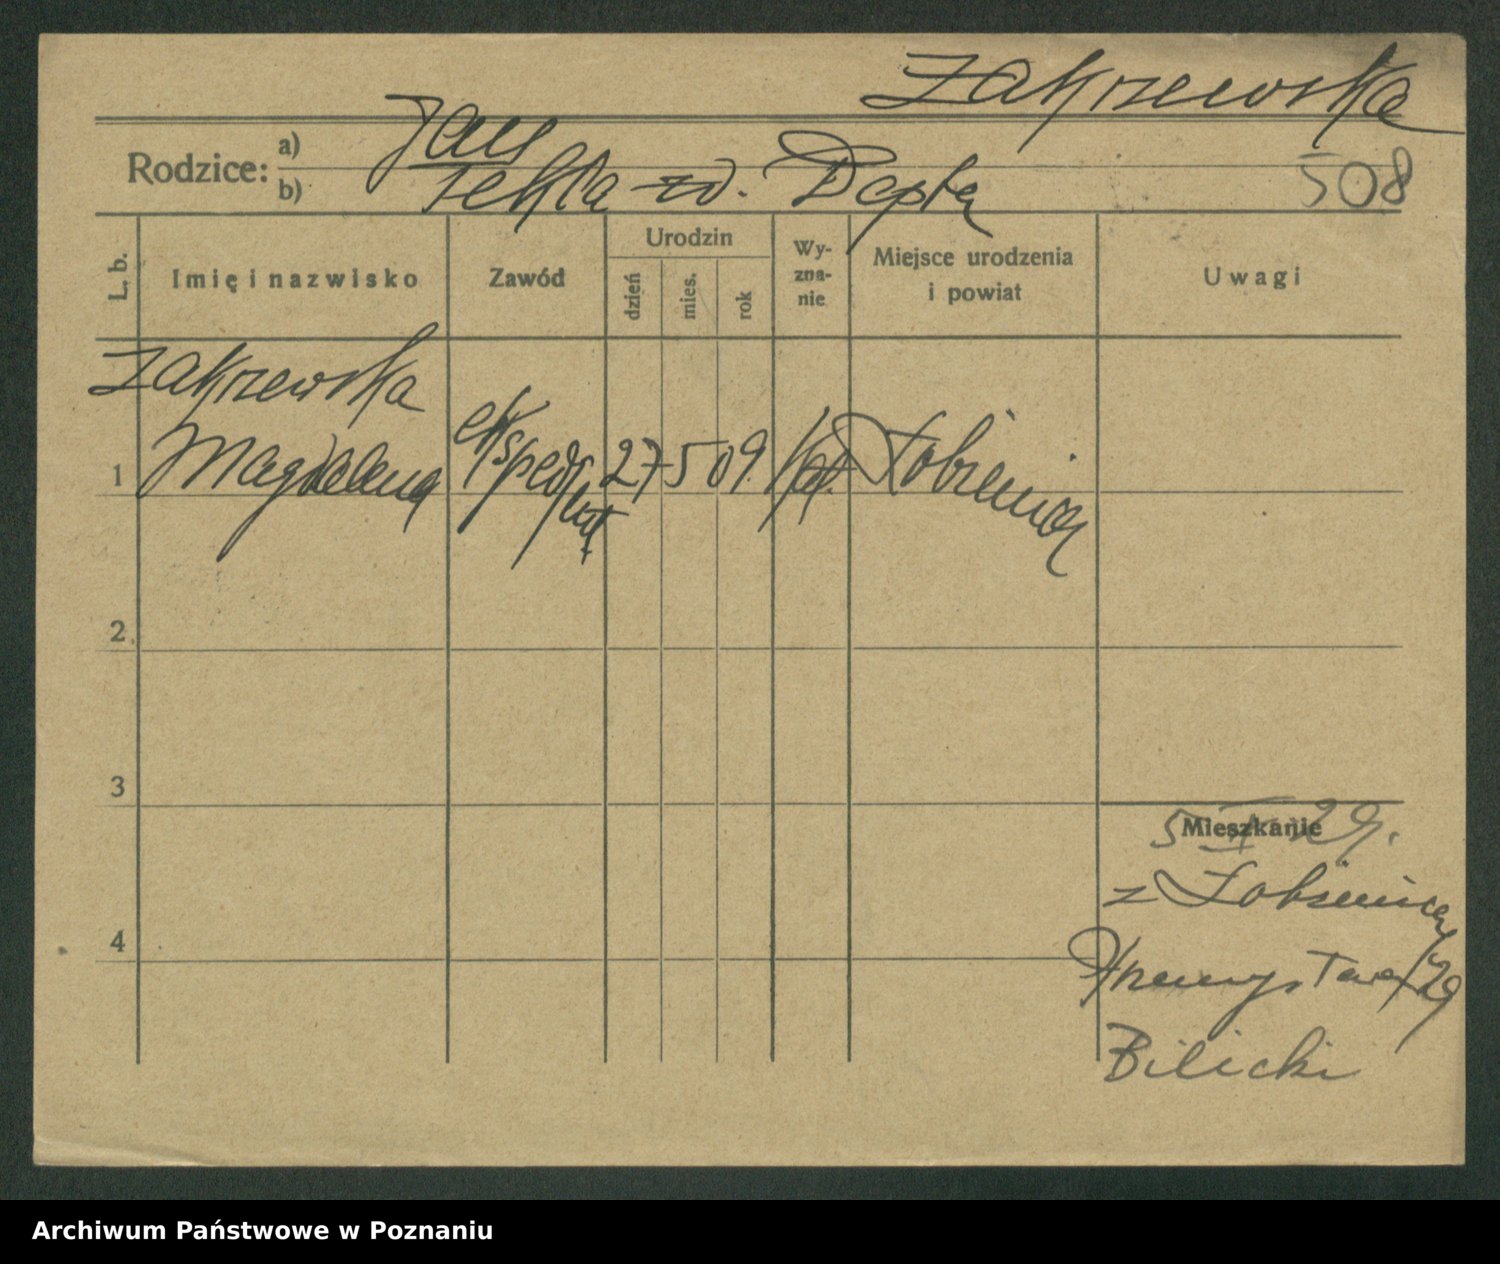 Zakrzewska
Rodzice: a) Jan
b) Tekla zd. Depta
508
L. b.
Imię i nazwisko
Zawód
Urodzin
dzień
mies.
rok
Wy-
zna-
nie
Miejsce urodzenia
i powiat
Uwagi
Zakrzewska
1 Magdalena
ekspedj
27 5 09. kat. Łobżenica
2.
3
Mieszkanie
29.
z Łobżenicy
4
Przemysłowa 29
Bilicki
Archiwum Państwowe w Poznaniu